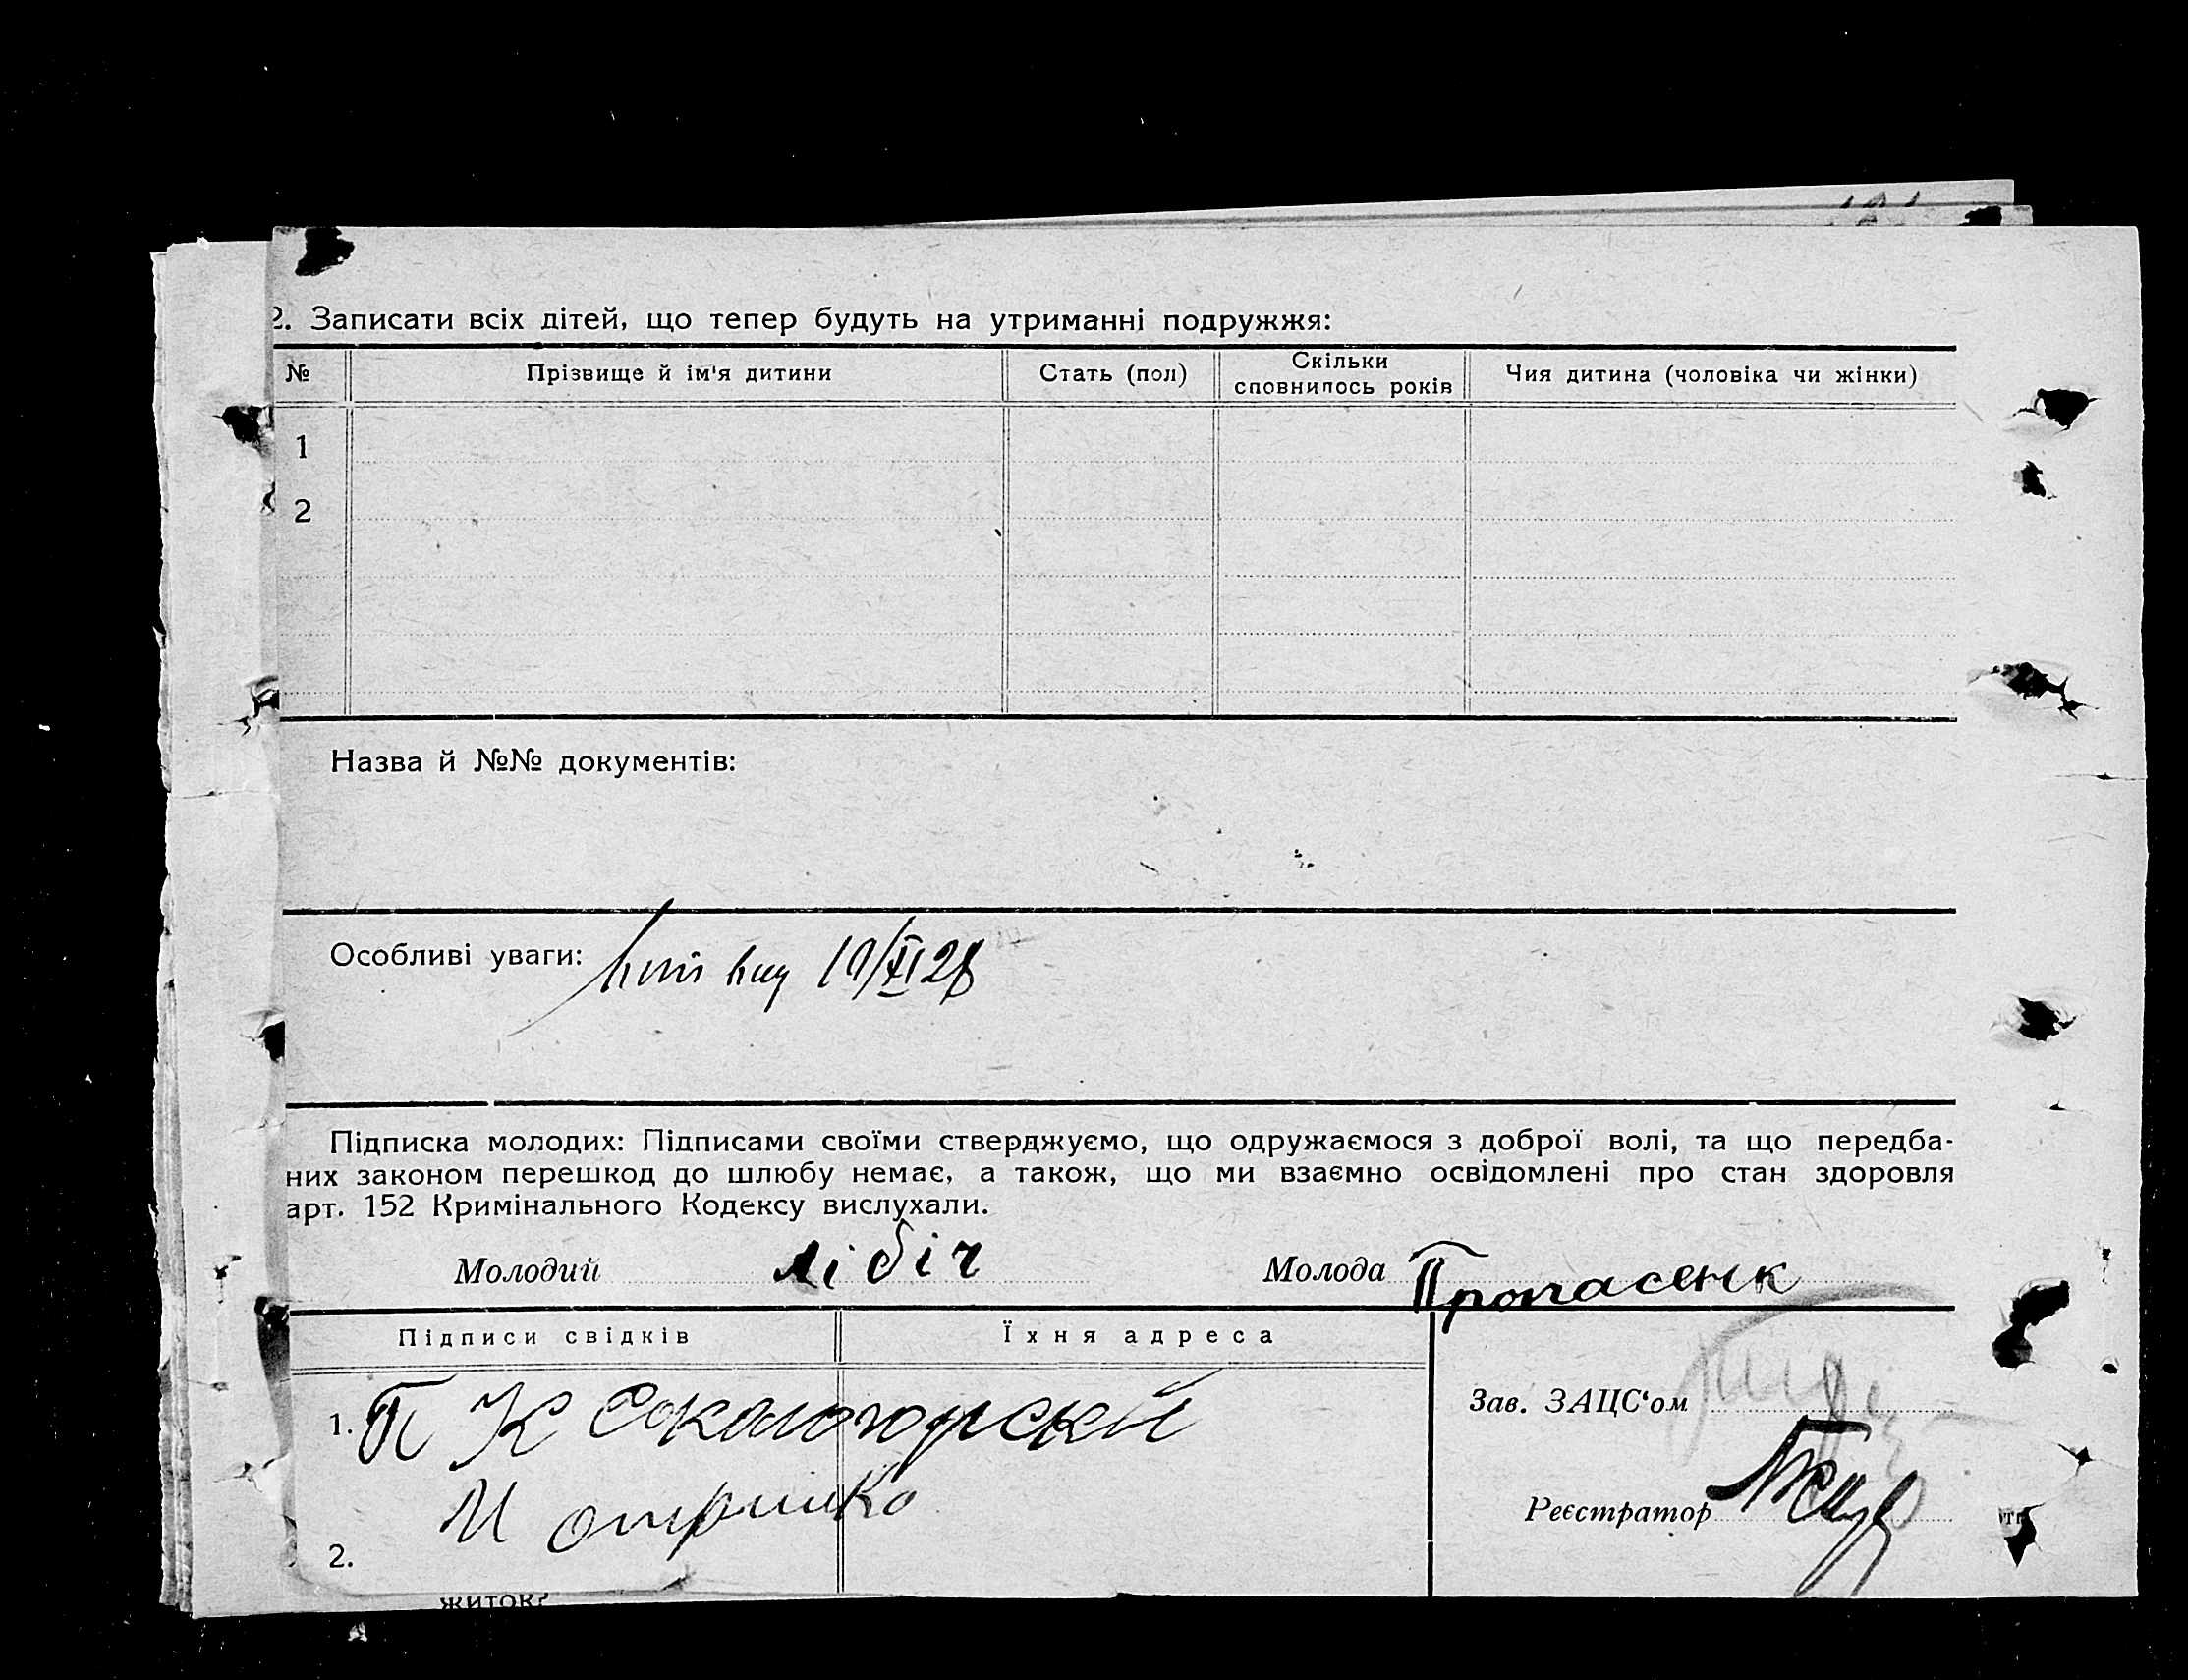 2. Записати всіх дітей, що тепер будуть на утриманні подружжя:
№ Прізвище й ім'я дитини Стать (пол) Скільки сповнилось років Чия дитина (чоловіка чи жінки)
1
2
Назва й №№ документів:
Особливі уваги:
Підписка молодих: Підписами своїми стверджуємо, що одружаємося з доброї волі, та що передба-
них законом перешкод до шлюбу немає, а також, що ми взаємно освідомлені про стан здоровля
арт. 152 Кримінального Кодексу вислухали.
Молодий лібіч Молода Пропасенк
Підписи свідків Їхня адреса
1. П К Сокологорскй
Зав. ЗАЦС'ом
2.
Реєстратор
житок